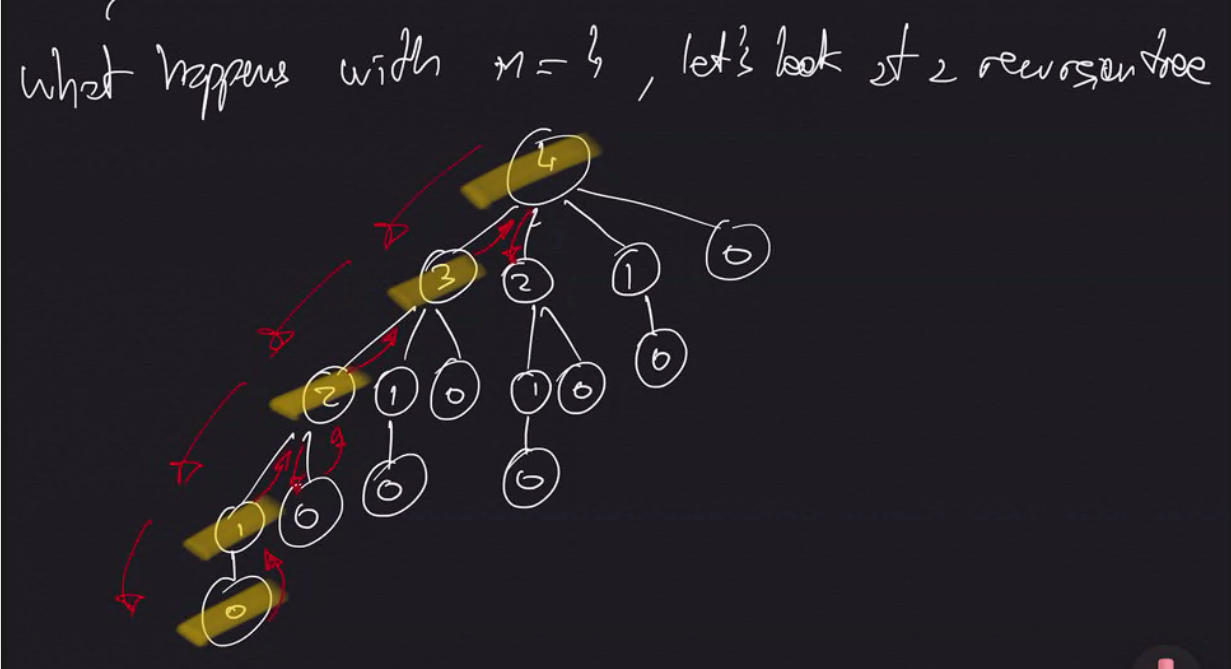 what happens with n = 4, let's look at a recursion tree
4
3 2 1 0
2 1 0 1 0 0
1 0 0 0
0